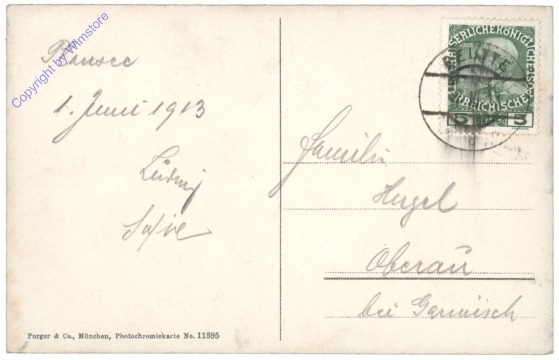 Copyright by Wimstore
Plansee
1. Juni 1913
Ludwig
Sofie
Purger & Co., München, Photochromiekarte No. 11395
KAISERLICHEKÖNIGLICHE
ÖSTERREICHISCHE
5 5
REUTTE
Familie
Hugel
Oberau
bei Garmisch